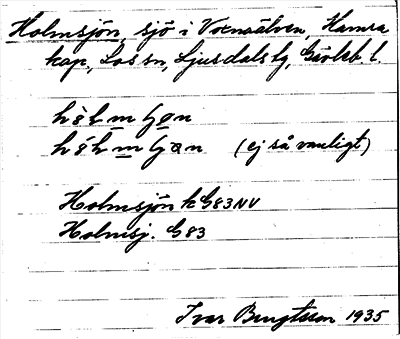 Holmsjön, sjö i Voxnaälven, Hamra
kap., Los sn, Ljusdals tg, Gävleb. l.
hòlmʃøn
hòlmʃɑn (ej så vanligt)
Holmsjön k G83NV
Holmsj. G83
Ivar Bengtsson 1935